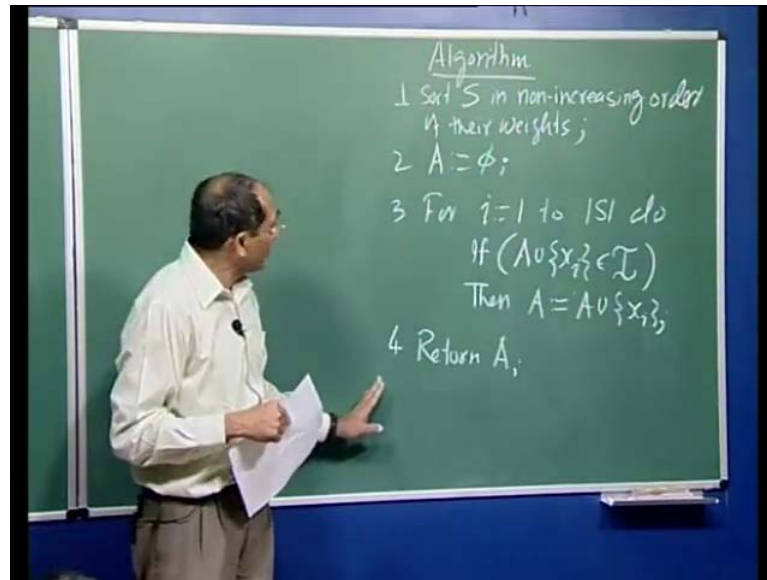 Algorithm
1 Sort S in non-increasing order
of their weights;
2 A := ϕ;
3 For i=1 to |S| do
If (A∪{xᵢ} ∈ I)
Then A := A∪{xᵢ};
4 Return A;